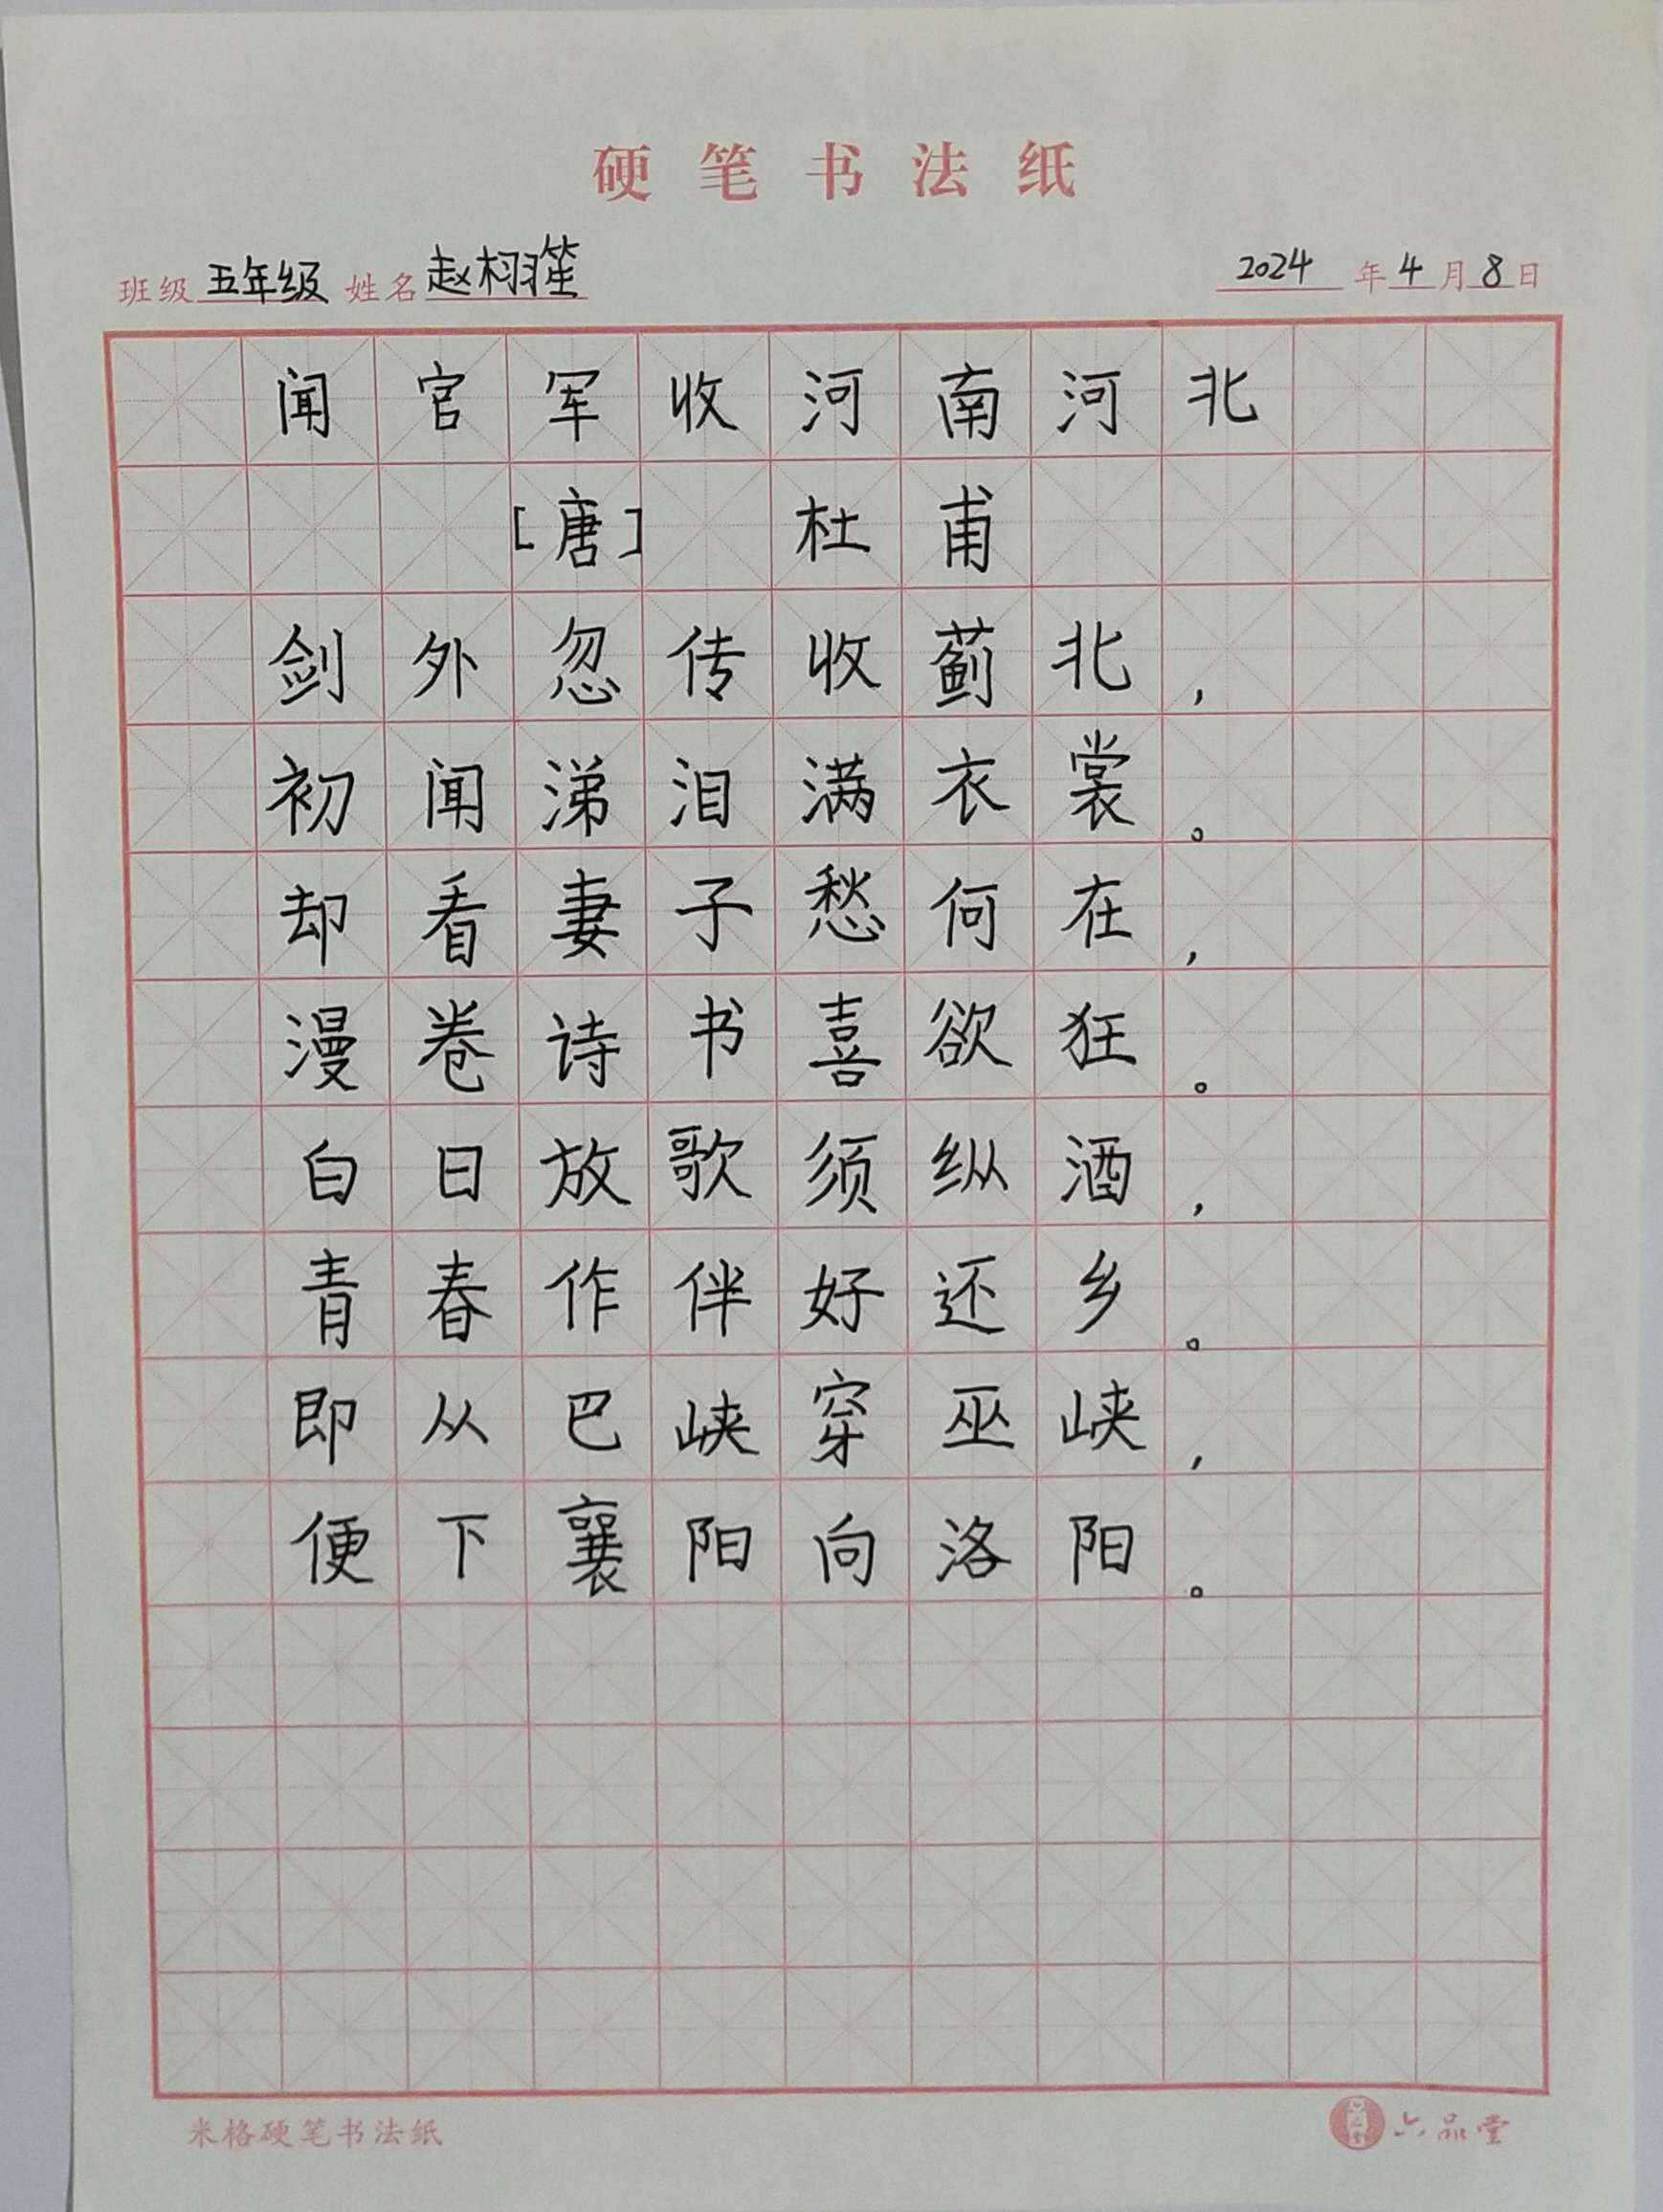 硬笔书法纸
班级 五年级 姓名 赵栩笙 2024 年 4 月 8 日
闻官军收河南河北
[唐] 杜甫
剑外忽传收蓟北，
初闻涕泪满衣裳。
却看妻子愁何在，
漫卷诗书喜欲狂。
白日放歌须纵酒，
青春作伴好还乡。
即从巴峡穿巫峡，
便下襄阳向洛阳。
米格硬笔书法纸 六品堂